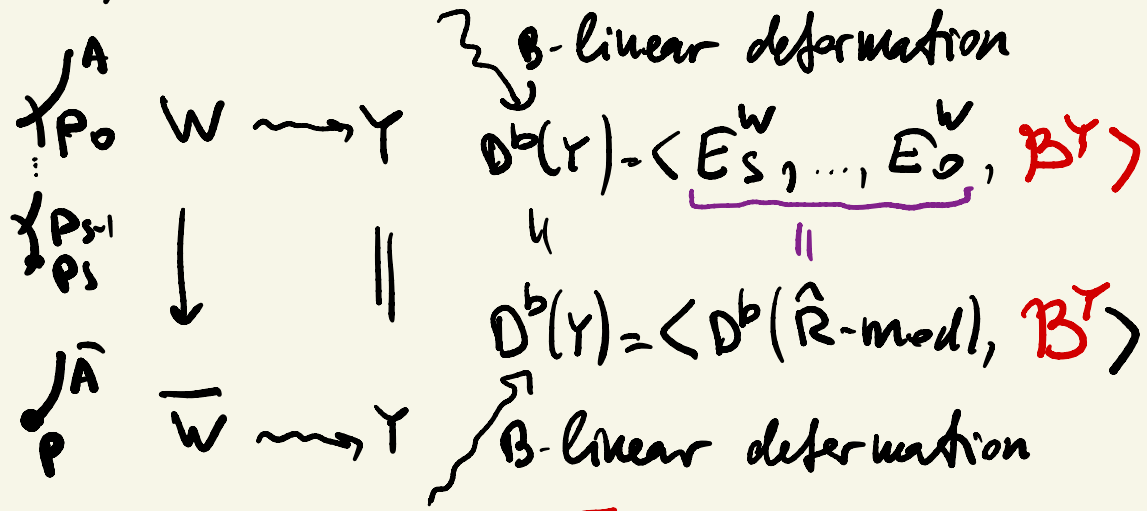 B-linear deformation
A
P₀ W ⟿ Y Dᵇ(Y) = < E_s^W, ..., E_0^W, B^Y >
⋮
P_{s-1} ↓ ‖ ‖ ‖
P_s
Dᵇ(Y) = < Dᵇ(R̂-mod), B^Y >
Ā
P W̄ ⟿ Y
B-linear deformation